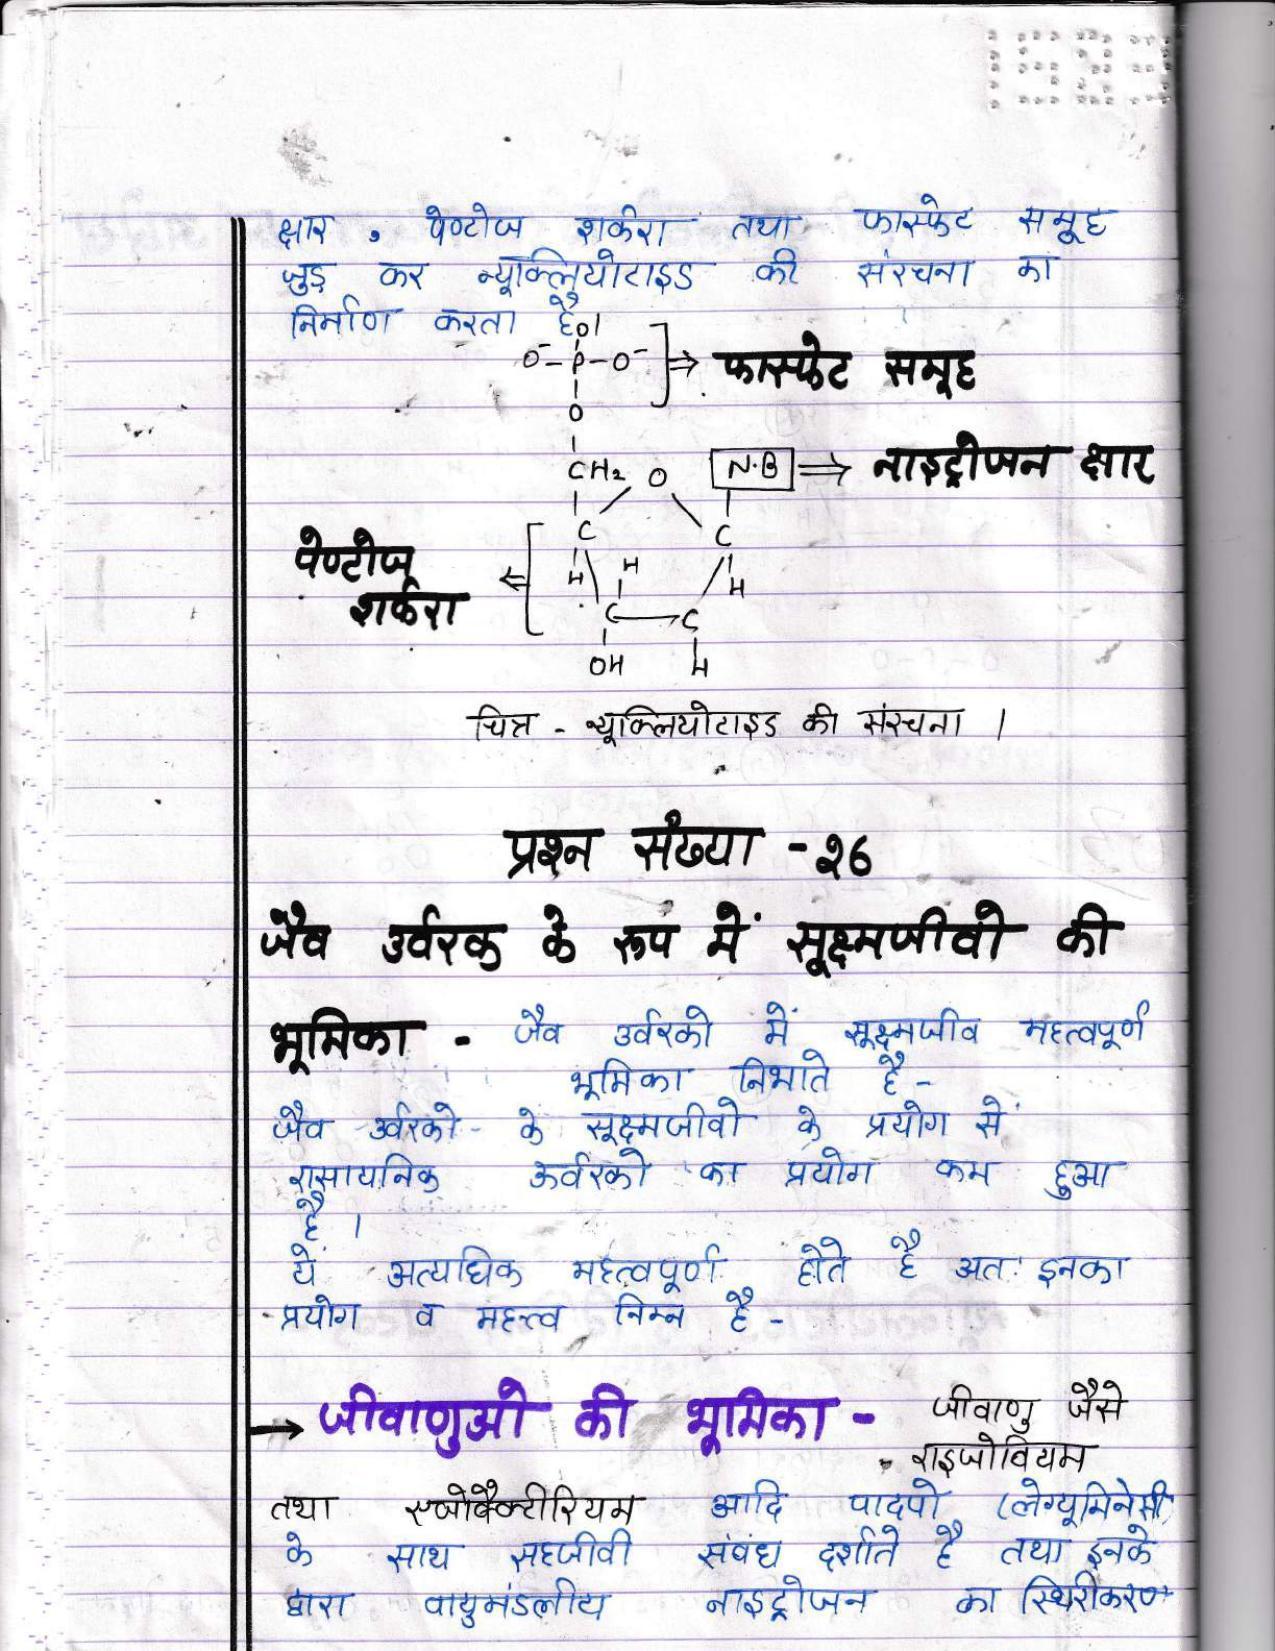 क्षार, पेण्टोज शर्करा तथा फास्फेट समूह
जुड़ कर न्यूक्लियोटाइड की संरचना का
निर्माण करता है।
O
O⁻-P-O⁻ ] ⇒ फास्फेट समूह
O
CH₂ O N.B ⇒ नाइट्रोजन क्षार
C C
पेण्टोज
H H H
शर्करा
C C
OH H
चित्र - न्यूक्लियोटाइड की संरचना ।
प्रश्न संख्या - 26
जैव उर्वरक के रूप में सूक्ष्मजीवो की
भूमिका - जैव उर्वरको में सूक्ष्मजीव महत्वपूर्ण
भूमिका निभाते है -
जैव उर्वरको के सूक्ष्मजीवो के प्रयोग से
रासायनिक ऊर्वरको का प्रयोग कम हुआ
है ।
ये अत्यधिक महत्वपूर्ण होते है अतः इनका
प्रयोग व महत्त्व निम्न है -
→ जीवाणुओ की भूमिका - जीवाणु जैसे
राइजोवियम
तथा एजोबैक्टीरियम आदि पादपो (लेग्यूमिनेसी)
के साथ सहजीवी संबंध दर्शाते है तथा इनके
द्वारा वायुमंडलीय नाइट्रोजन का स्थिरीकरण